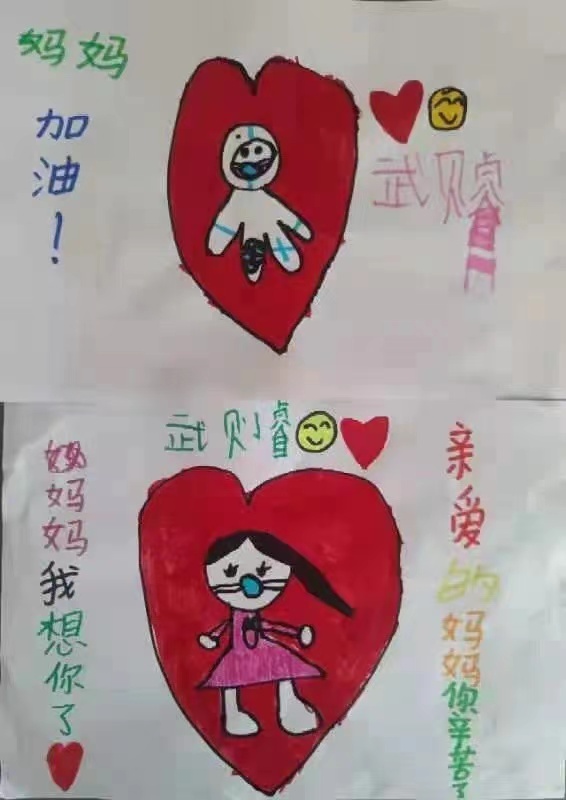 妈妈
加油！
武则睿
武则睿
妈妈妈我想你了
亲爱的妈妈你辛苦了